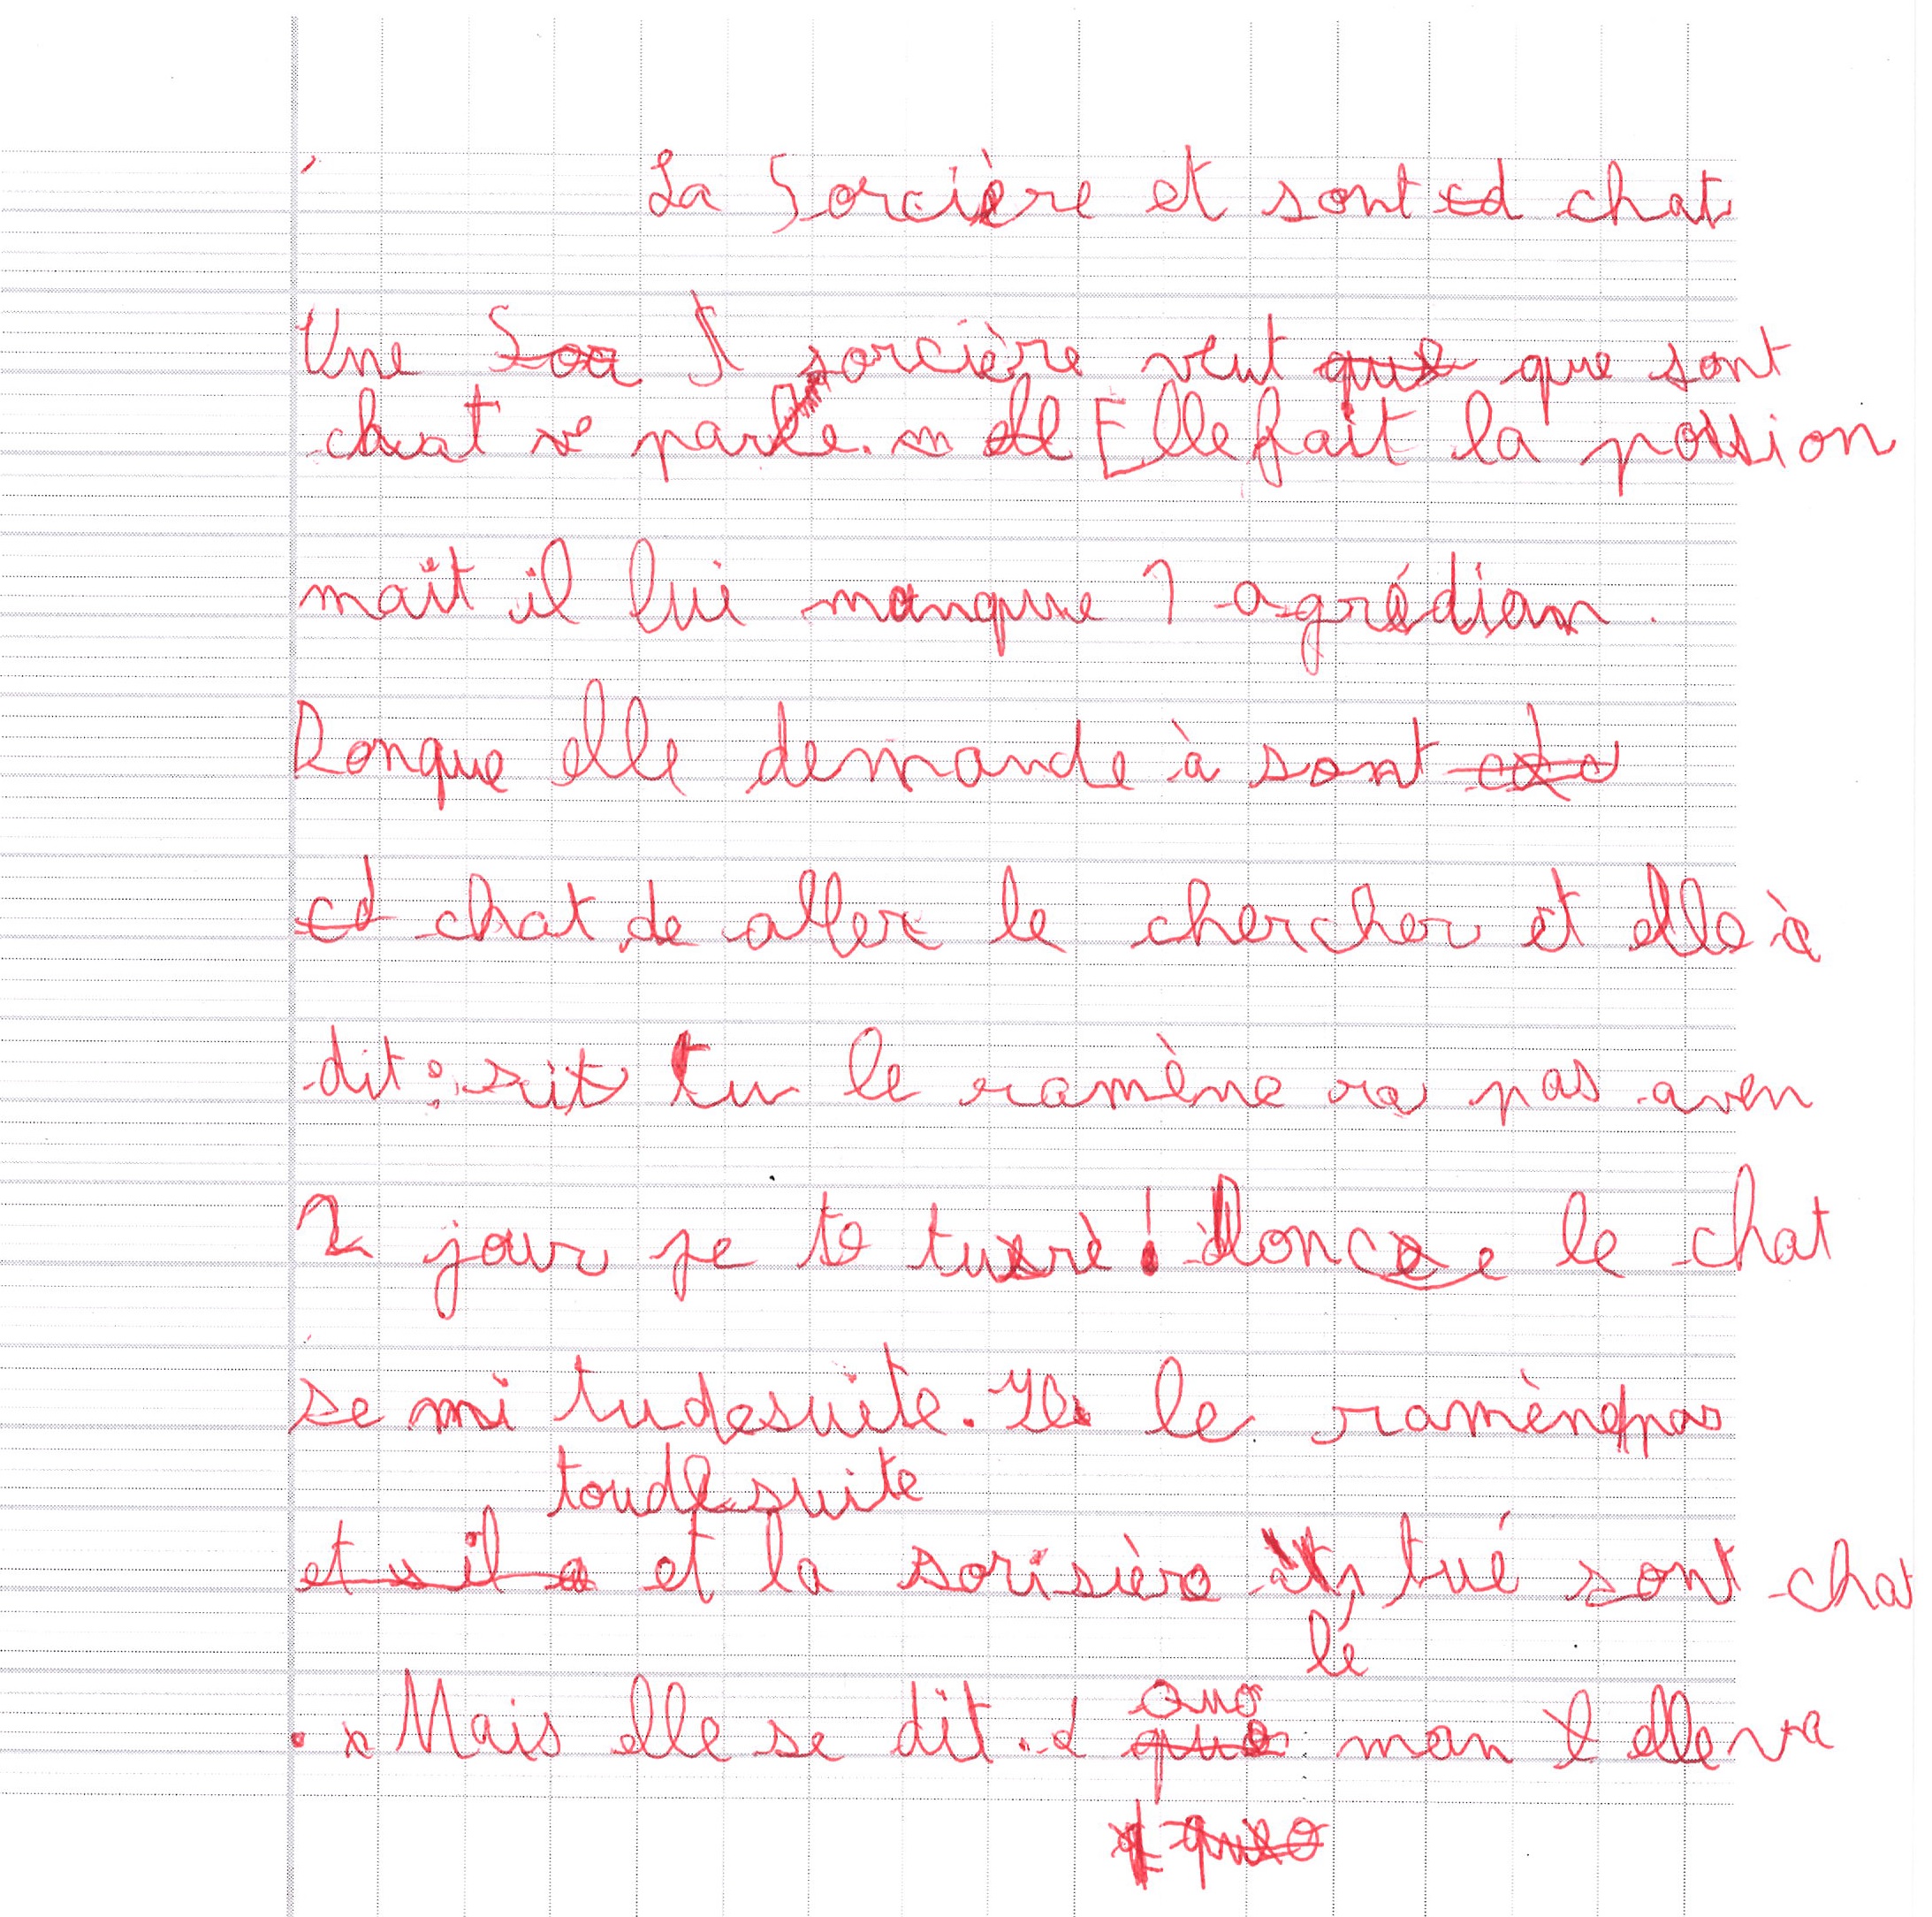 La Sorcière et sont chat
Une sorcière veut que sont
chat parle. Elle fait la possion
mait il lui manque 1 agrédian.
Donque elle demande à sont
chat de aller le chercher et elle à
dit : sit tu le ramène ra pas aven
2 jour je te tuerè ! Donce le chat
se mi tudesuite. Il le ramène pas
toudesuite
et la sorisière tué sont chat
lé
. Mais elle se dit . que
man elle va